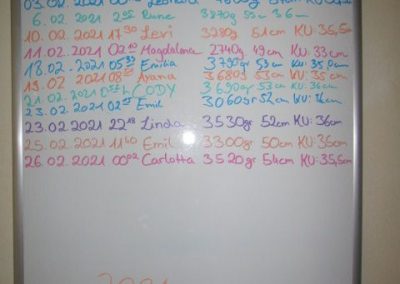 03.02.2021
6.02.2021 2 Rune 3870gr 55cm 36cm
10.02.2021 17³⁰ Levi 3280g 51cm KU: 35,5cm
11.02.2021 02¹⁰ Magdalena 2740g 49cm KU: 33cm
18.02.2021 05³³ Emilia 3790gr 53cm KU: 35,0cm
19.02.2021 Ayana 3680g 53cm KU: 35cm
21.02.2021 CODY 3690gr 53cm KU: 36cm
23.02.2021 Emil 3060gr 52cm KU:
23.02.2021 22¹⁸ Linda 3530gr 52cm KU: 36cm
25.02.2021 11⁴⁰ Emil 3300gr 50cm KU: 36cm
26.02.2021 00⁰² Carlotta 3520gr 54cm KU: 35,5cm
2021